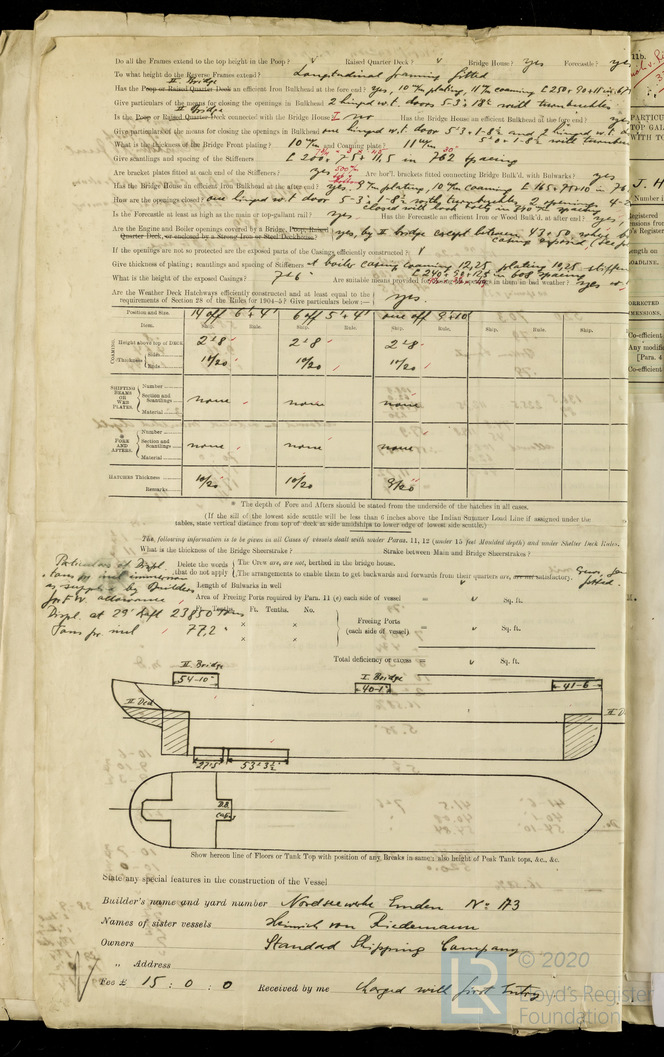 Do all the Frames extend to the top height in the Poop? √ Raised Quarter Deck? √ Bridge House? yes Forecastle? ye
To what height do the Reverse Frames extend? Longitudinal framing fitted
II Bridge
Has the Poop or Raised Quarter Deck an efficient Iron Bulkhead at the fore end? yes, 10 m/m plating, 11 m/m coaming
Give particulars of the means for closing the openings in Bulkhead 2 hinged w.t. doors 5-3 × 1-8½ with turnbuckles
II Bridge
Is the Poop or Raised Quarter Deck connected with the Bridge House I no Has the Bridge House an efficient Bulkhead at the fore end? yes
Give particulars of the means for closing the openings in Bulkhead one hinged w.t. door 5'3 × 1-8½ and 2 hinged w.t. d
5'0 × 1-8½ with turnbu
What is the thickness of the Bridge Front plating? 10 m/m and Coaming plate? 11 m/m
Give scantlings and spacing of the Stiffeners [ 200 × 75 × 11,5 in 762 spacing
Are bracket plates fitted at each end of the Stiffeners? yes Are hor'l. brackets fitted connecting Bridge Bulk'd. with Bulwarks? yes
Has the Bridge House an efficient Iron Bulkhead at the after end? yes. 9 m/m plating, 10 m/m coaming [ 165 × 75 × 10 in 76
How are the openings closed? one hinged w.t. door 5-3 × 1-8½ with turnbuckles 2 openings 4-2
Is the Forecastle at least as high as the main or top-gallant rail? yes Has the Forecastle an efficient Iron or Wood Bulk'd, at after end? yes
Are the Engine and Boiler openings covered by a Bridge, Poop, Raised
Quarter Deck, or enclosed by a Strong Iron or Steel Deckhouse? yes, by II bridge except between 43 & 50 where b
casing exposed
If the openings are not so protected are the exposed parts of the Casings efficiently constructed? √
Give thickness of plating; scantlings and spacing of Stiffeners at boiler casing coaming 12,25 plating 10,25 stiffen
in 608 spacing
What is the height of the exposed Casings? 7-6 Are suitable means provided for closing the openings in them in bad weather? yes
Are the Weather Deck Hatchways efficiently constructed and at least equal to the
requirements of Section 28 of the Rules for 1904-5? Give particulars below:— yes
Position and Size. 14 off 6' × 4' 6 off 5' × 4' one off 9' × 10'
Item. Ship. Rule. Ship. Rule. Ship. Rule. Ship. Rule. Ship.
COAMING Height above top of DECK 2-8 2-8 2-8
Thickness Sides 10/20 10/20 10/20
Ends
SHIFTING BEAMS OR WEB PLATES. Number
Section and Scantlings none none none
Material
* FORE AND AFTERS. Number
Section and Scantlings none none none
Material
HATCHES Thickness 10/20 10/20 9/20
Remarks
* The depth of Fore and Afters should be stated from the underside of the hatches in all cases.
(If the sill of the lowest side scuttle will be less than 6 inches above the Indian Summer Load Line if assigned under the
tables, state vertical distance from top of deck at side amidships to lower edge of lowest side scuttle.)
The following information is to be given in all Cases of vessels dealt with under Paras. 11, 12 (under 15 feet Moulded depth) and under Shelter Deck Rules.
What is the thickness of the Bridge Sheerstrake? Strake between Main and Bridge Sheerstrakes?
Particulars of Displ.
Tons pr inch immersion
as supplied by Builders
for F.W. allowance
Displ. at 29' Draft 23850 tons
Tons pr inch 77,2
Delete the words that do not apply The Crew are, are not, berthed in the bridge house.
The arrangements to enable them to get backwards and forwards from their quarters are, are not satisfactory. fitted.
Length of Bulwarks in well
Area of Freeing Ports required by Para. 11 (e) each side of vessel = √ Sq. ft.
Ft. Tenths. Ft. Tenths. No.
× × Freeing Ports
(each side of vessel) = √ Sq. ft.
× ×
Total deficiency or excess = √ Sq. ft.
II Bridge
54-10"
I Bridge
40-1"
41-6
II Deck
II D
27-5
53-3½
D.B.
Show hereon line of Floors or Tank Top with position of any Breaks in same; also height of Peak Tank tops, &c., &c.
State any special features in the construction of the Vessel
Builder's name and yard number Nordseewerke Emden No 173
Names of sister vessels Heinrich von Riedemann
Owners Standard Shipping Company
„ Address
Fee £ 15 : 0 : 0 Received by me charged with first Entry
11b.
PARTICU
TOP GAL
WITH TO
J. H
Number i
Registered
ensions from
's Register
ength on
OADLINE.
ORRECTED
IMENSIONS.
Co-efficient
Any modifi
[Para. 4
Co-efficient
LR
© 2020
Lloyd's Register
Foundation